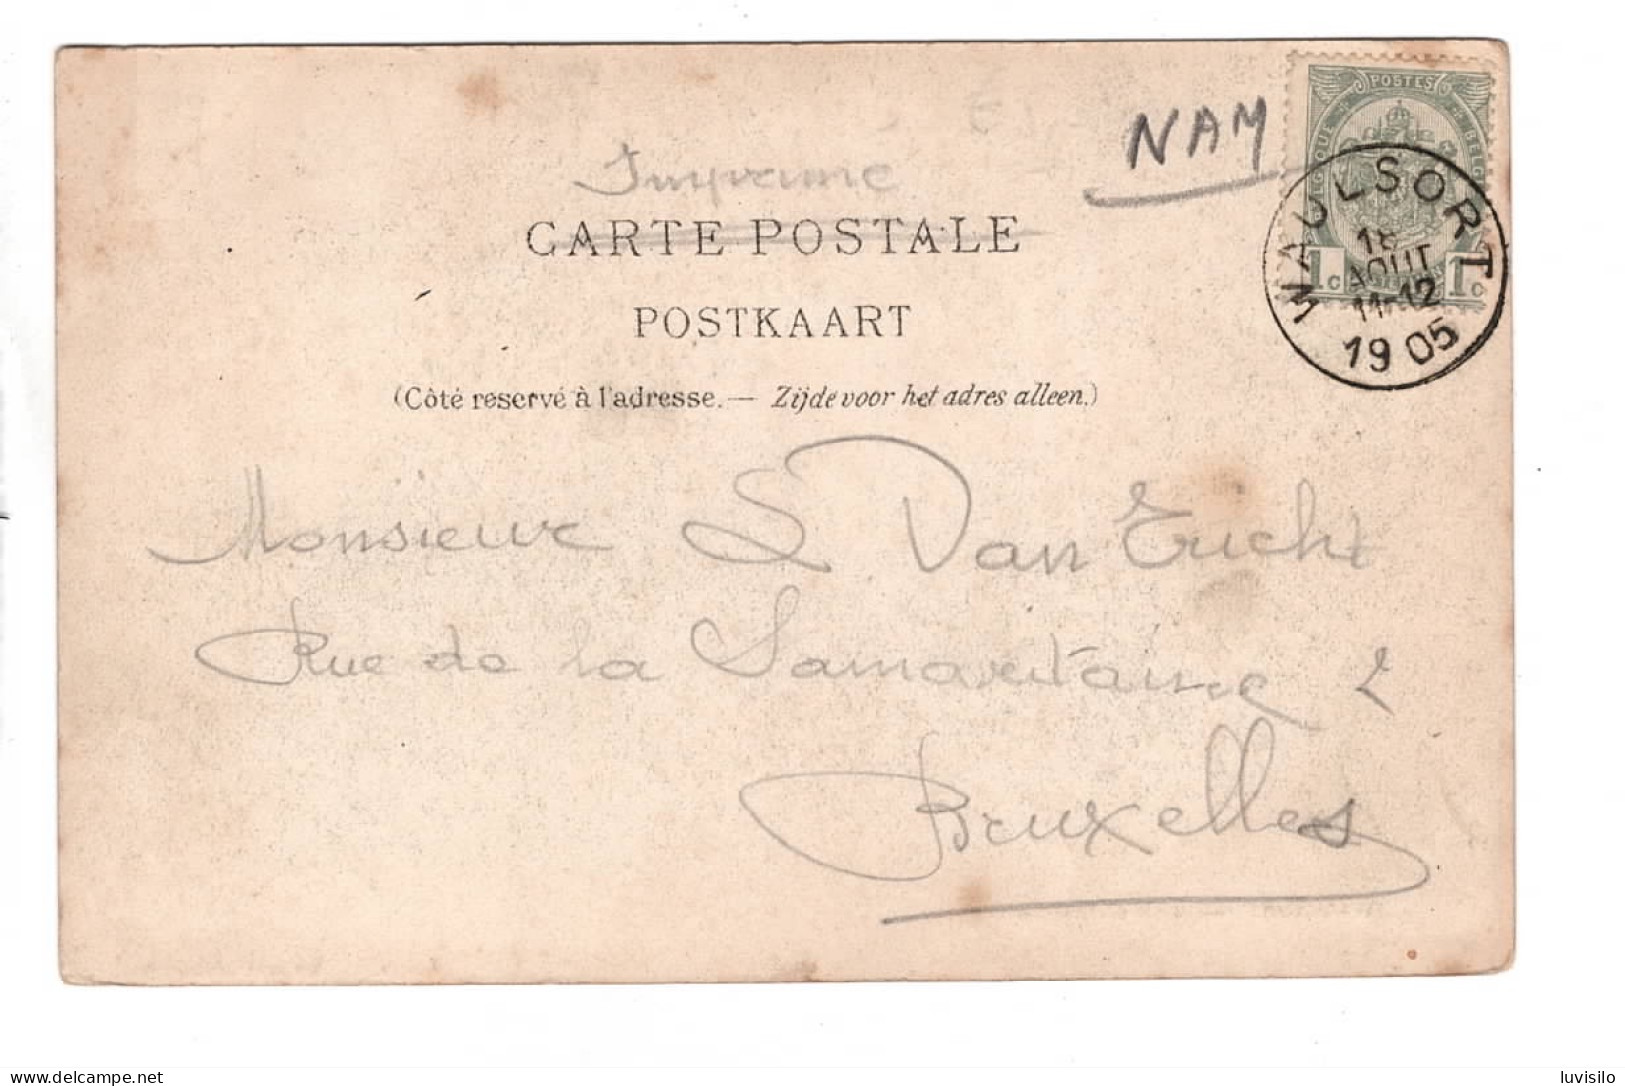 POSTES
BELGIQUE
BELGIË
1 C 1 C
WAULSORT
18
AOUT
11-12
1905
NAM
Imprimé
CARTE POSTALE
POSTKAART
(Côté reservé à l'adresse. — Zijde voor het adres alleen.)
Monsieur L Van Tricht
Rue de la Samaritaine 2
Bruxelles
Delcampe.net
luvisilo